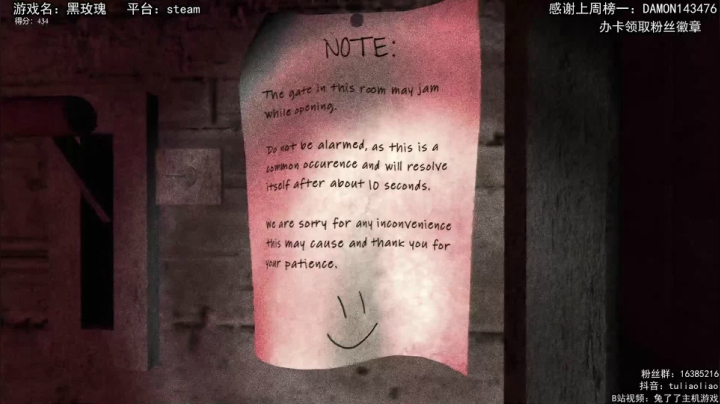 游戏名：黑玫瑰 平台：steam
得分：434
感谢上周榜一：DAMON143476
办卡领取粉丝徽章
NOTE:
The gate in this room may jam
while opening.
Do not be alarmed, as this is a
common occurence and will resolve
itself after about 10 seconds.
We are sorry for any inconvenience
this may cause and thank you for
your patience.
粉丝群：16385216
抖音：tuliaoliao
B站视频：兔了了主机游戏